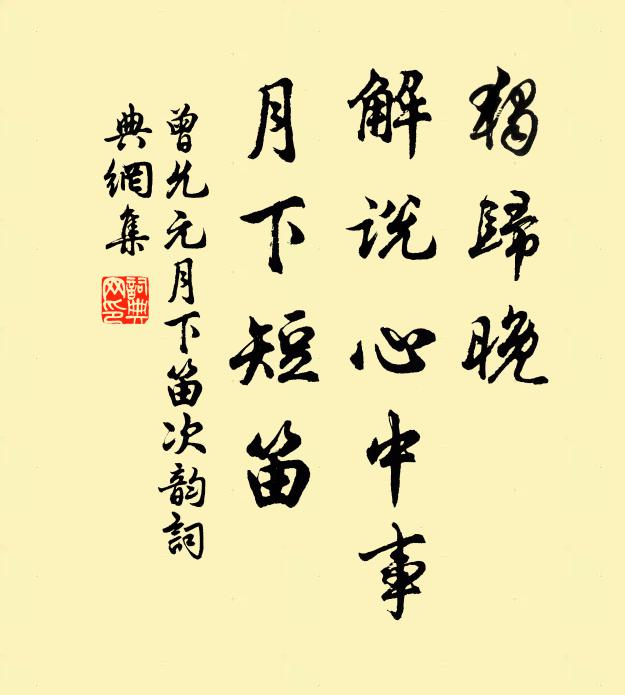 獨歸晚
解说心中事
月下短笛
曾允元月下笛次韵詞
典網集
詞典
网印